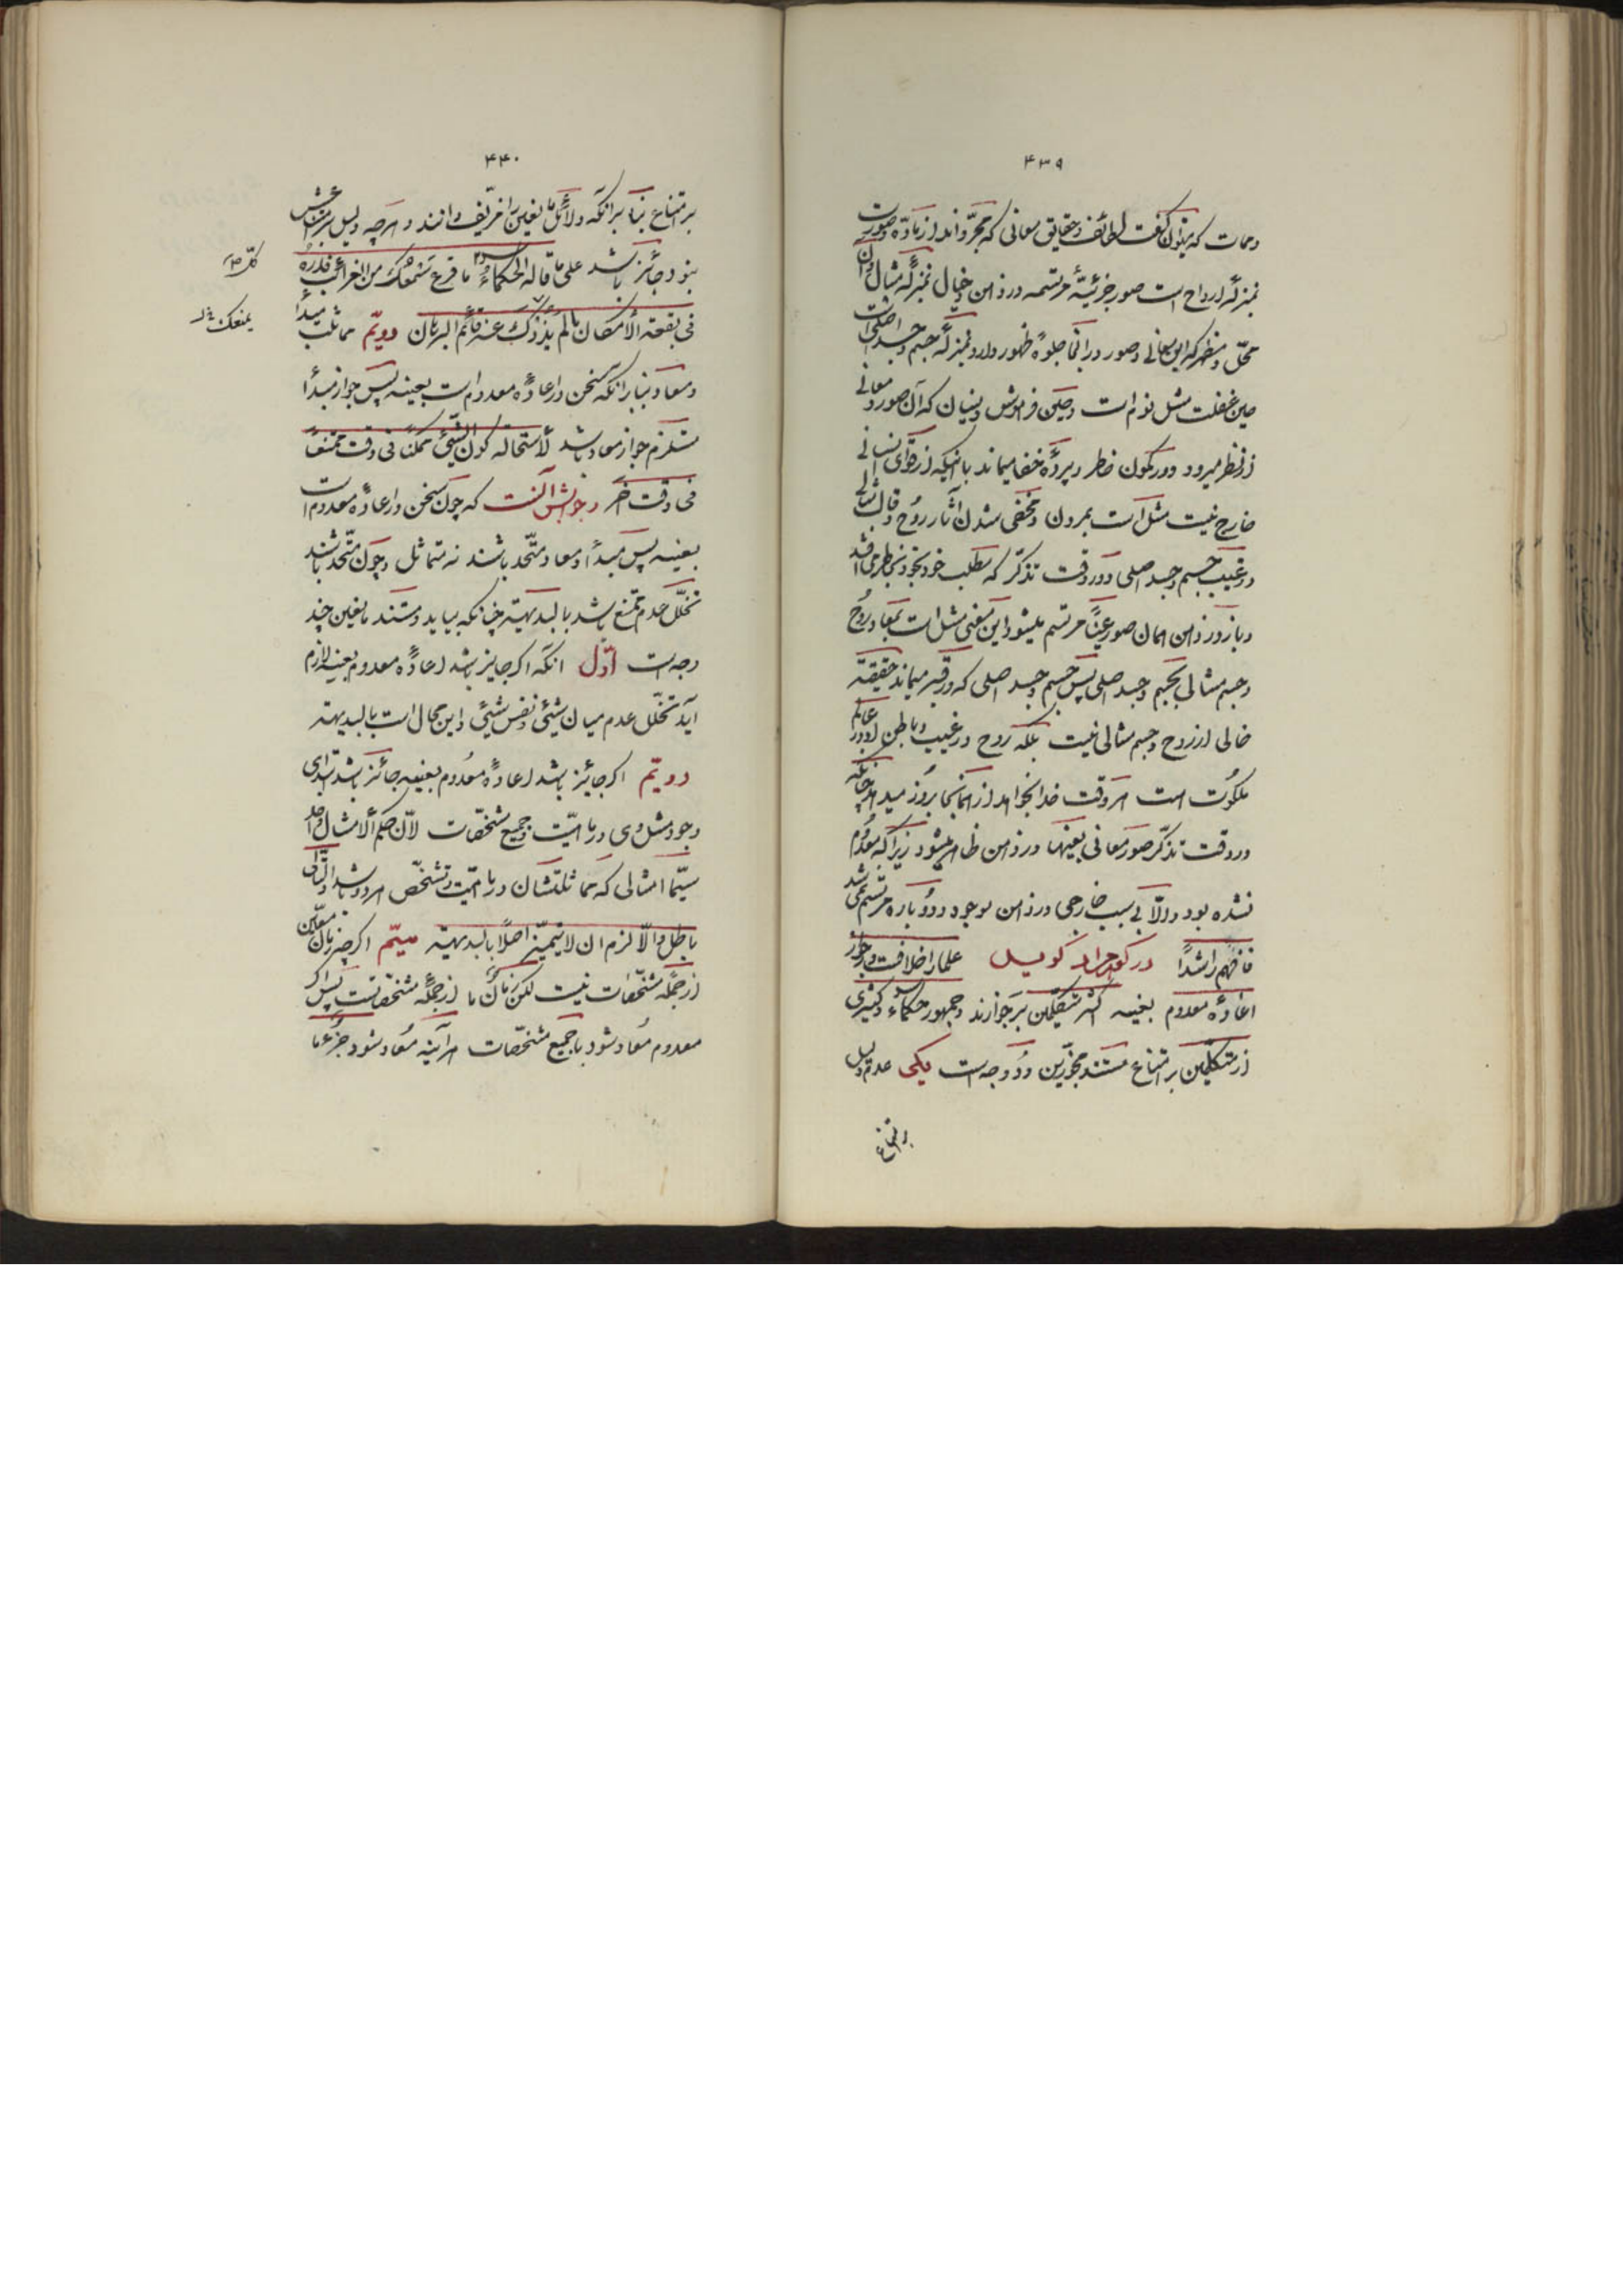 ۴۳۹
و حمات که بتوان گفت لطائف و حقایق معانی که مجرّدند از مادّه و صورت
بمنزلهٔ ارواح است صور جزئیّهٔ مرتسمه در ذهن و خیال بمنزلهٔ مثال و آن
محلّ و مظهر که این معانی و صور در انجا جلوه و ظهور دارد بمنزلهٔ جسم و جسد اصلی است
حین غفلت مثل نوم است و حین فراموشی و نسیان که آن صور و معانی
از نظر میرود و در کمون خاطر و پردهٔ خفا میماند با اینکه از قوای نفسانی
خارج نیست مثل است بمردن و مخفی شدن آثار روح و قالب مثالی
در غیب جسم و جسد اصلی و در وقت تذکّر که مطلب خود بخود بخاطر می افتد
و باز در ذهن همان صور عیناً مرتسم میشود این معنی مثل است بمعاد روح
و جسم مثالی بجسم و جسد اصلی پس جسم و جسد اصلی که در قبر میماند حقیقة
خالی از روح و جسم مثالی نیست بلکه روح در غیب و باطن او در عالم
ملکوت است هر وقت خدا بخواهد از همانجا بروز میدهد چنانکه
در وقت تذکّر صور معانی بعینها در ذهن ظاهر میشود زیرا که معدوم
نشده بود و الّا بی سبب خارجی در ذهن موجود و دوباره مرتسم نمی شد
فافهم راشداً در گوهر مراد گوید علما را خلافست در جواز
اعادهٔ معدوم بعینه اکثر متکلّمین بر جوازند و جمهور حکماء و کثیری
از متکلّمین بر امتناع مستند مجوّزین دو وجه است یکی عدم دلیل
بر امتناع
۴۴۰
بر امتناع بناء برآنکه دلائل مانعین را مزیّف دانند و هرچه دلیل بر امتناعش
نبود جائز باشد علی ما قاله الحکماء کلّ ما قرع سمعک من الغرائب فذره
فی بقعة الامکان ما لم یذدک عنه قائم البرهان دویّم مماثلت مبدأ
و معاد بنا برانکه سخن در اعادهٔ معدوم است بعینه پس جواز مبدأ
مستلزم جواز معاد باشد لاستحالة کون الشیئ ممکناً فی وقت ممتنعاً
فی وقت آخر و جوابش آنست که چون سخن در اعادهٔ معدوم است
بعینه پس مبدأ و معاد متّحد باشند نه متماثل و چون متّحد باشند
تخلّل عدم ممتنع باشد بالبدیهة چنانکه بیاید و مستند مانعین چند
وجه است اوّل انکه اگر جایز باشد اعادهٔ معدوم بعینه لازم
آید تخلّل عدم میان شیئ و نفس شیئ و این محال است بالبدیهة
دویّم اگر جائز باشد اعادهٔ معدوم بعینه جائز باشد ابتدای
وجود مثل وی در ماهیّت و جمیع مشخّصات لانّ حکم الامثال واحد
سیّما امثالی که مماثلتشان در ماهیّت و تشخّص هر دو باشد و التّالی
باطل و الّا لزم ان لا یتمیّز اصلاً بالبدیهة سیّم اگر چه زمان معیّن
از جملهٔ مشخّصات نیست لکن زمان ما از جملهٔ مشخّصاتست پس اگر
معدوم معاد شود با جمیع مشخّصات هرآینه معاد شود جزء ما
کلّ ما
یمنعک خ ل